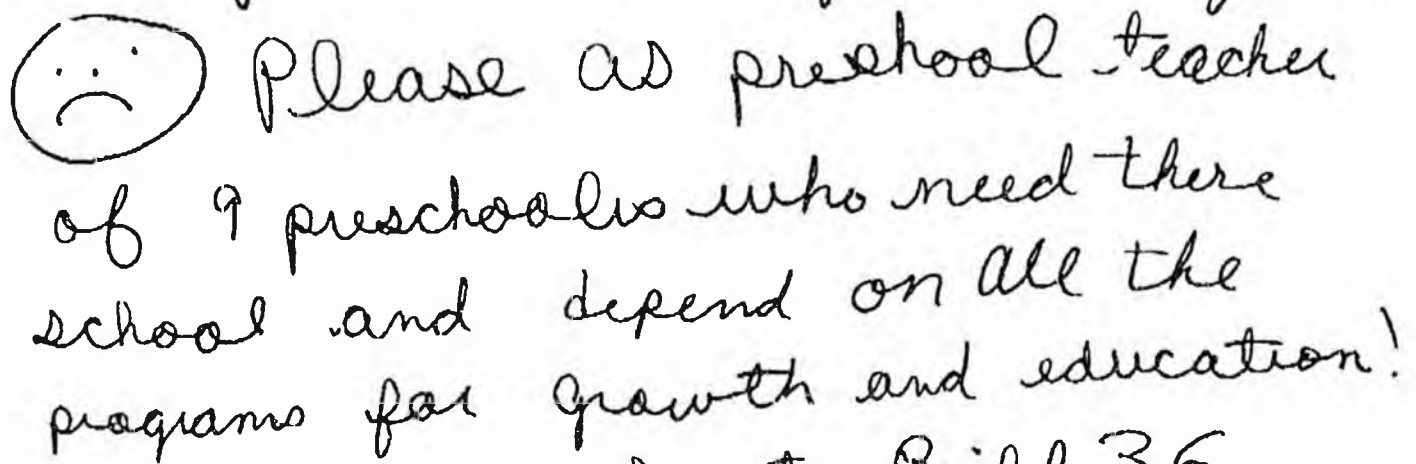 Please as preshool teacher
of 9 preschoolers who need there
school and depend on all the
programs for growth and education!
Bill 36